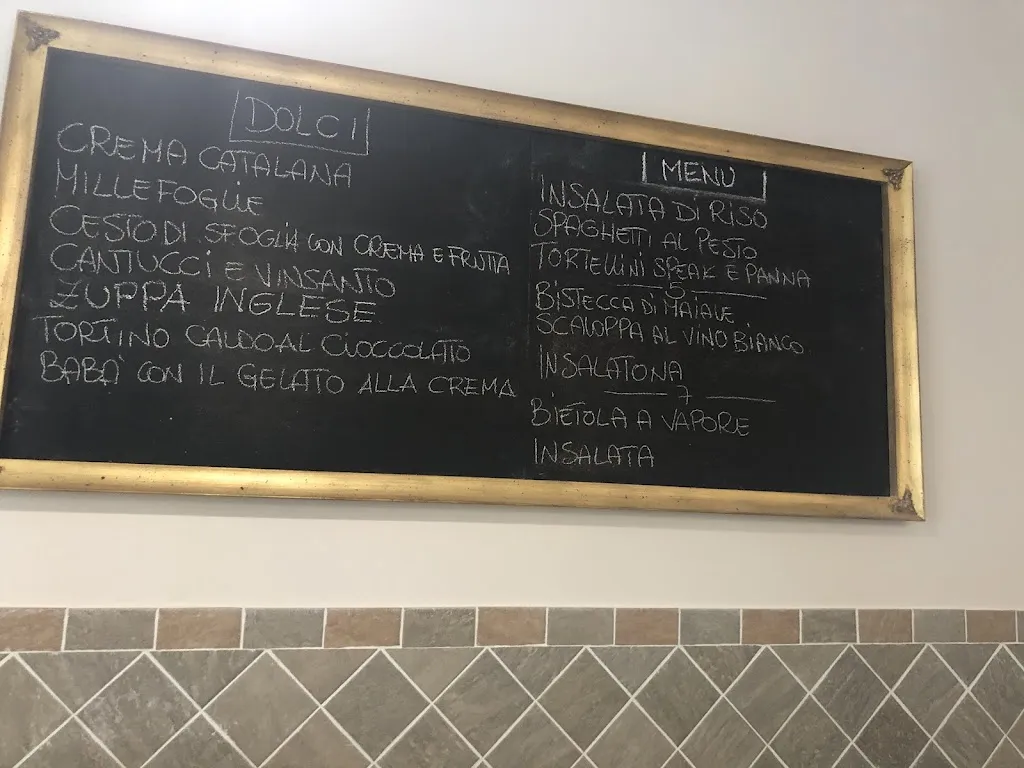 DOLCI
CREMA CATALANA
MILLEFOGLIE
CESTO DI SFOGLIA CON CREMA E FRUTTA
CANTUCCI E VINSANTO
ZUPPA INGLESE
TORTINO CALDO AL CIOCCOLATO
BABÀ CON IL GELATO ALLA CREMA
MENU
INSALATA DI RISO
SPAGHETTI AL PESTO
TORTELLINI SPEAK E PANNA
5
BISTECCA DI MAIALE
SCALOPPA AL VINO BIANCO
INSALATONA
7
BIETOLA A VAPORE
INSALATA